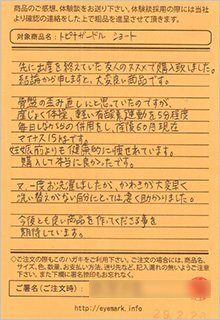 商品のご感想、体験談をお送り下さい。体験談採用の際には当社
より確認の連絡をした上で粗品を進呈させて頂きます。
対象商品名: トビキリガードル ショート
先に出産を終えていた友人のススメで購入致しました。
結論から申しますと、大変良い商品です。
骨盤の歪み直しにと思っていたのですが、
産じょく体操、軽い有酸素運動を5分程度
毎日しながらの併用をし、産後6ヶ月現在
マイナス15kgです。
妊娠前よりも健康的に痩せています。
購入して本当に良かったです。
マ、一度お洗濯しましたが、かわきが大変早く
洗い替えがない自分にとっては凄く助かりました。
今後とも良い商品を作ってくださる事を
期待しています。
◇ご注文の際もこのハガキをご利用下さい。ご注文の場合には、商品名、
サイズ、色、数量、お支払い方法、送り先など、記入漏れの無いようご注意
下さい。また下欄に署名捺印もお忘れなく。
ご署名(ご注文時):
http://eyemark.info